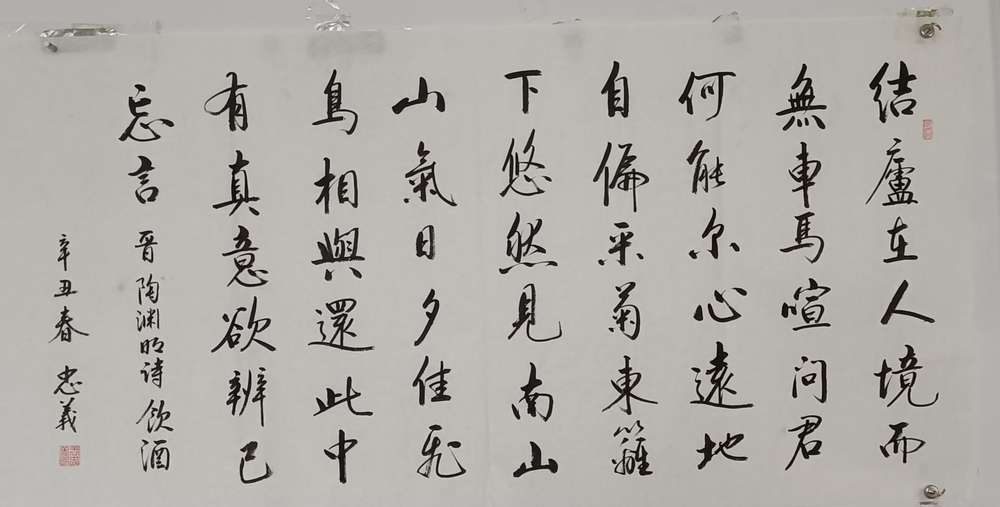 结廬在人境而
無車馬喧问君
何能尔心遠地
自偏采菊東籬
下悠然見南山
山氣日夕佳飛
鳥相與還此中
有真意欲辨已
忘言 晋陶渊明诗飲酒
辛丑春 忠義